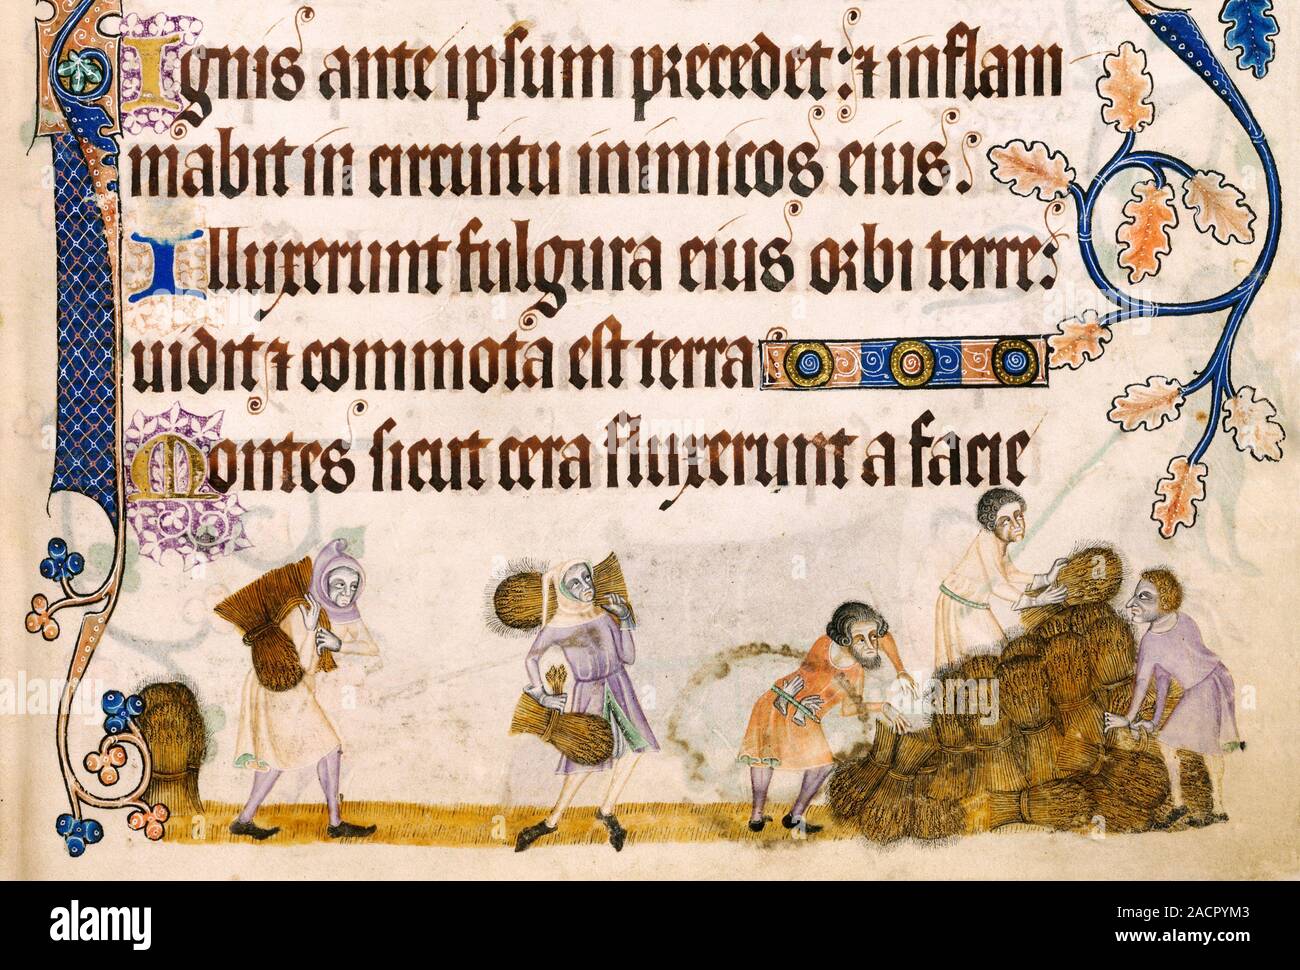 Ignis ante ipsum precedet: ⁊ inflam
mabit in circuitu inimicos eius.
Illuxerunt fulgura eius orbi terre:
uidit ⁊ commota est terra
Montes sicut cera fluxerunt a facie
alamy
Image ID: 2ACPYM3
www.alamy.com